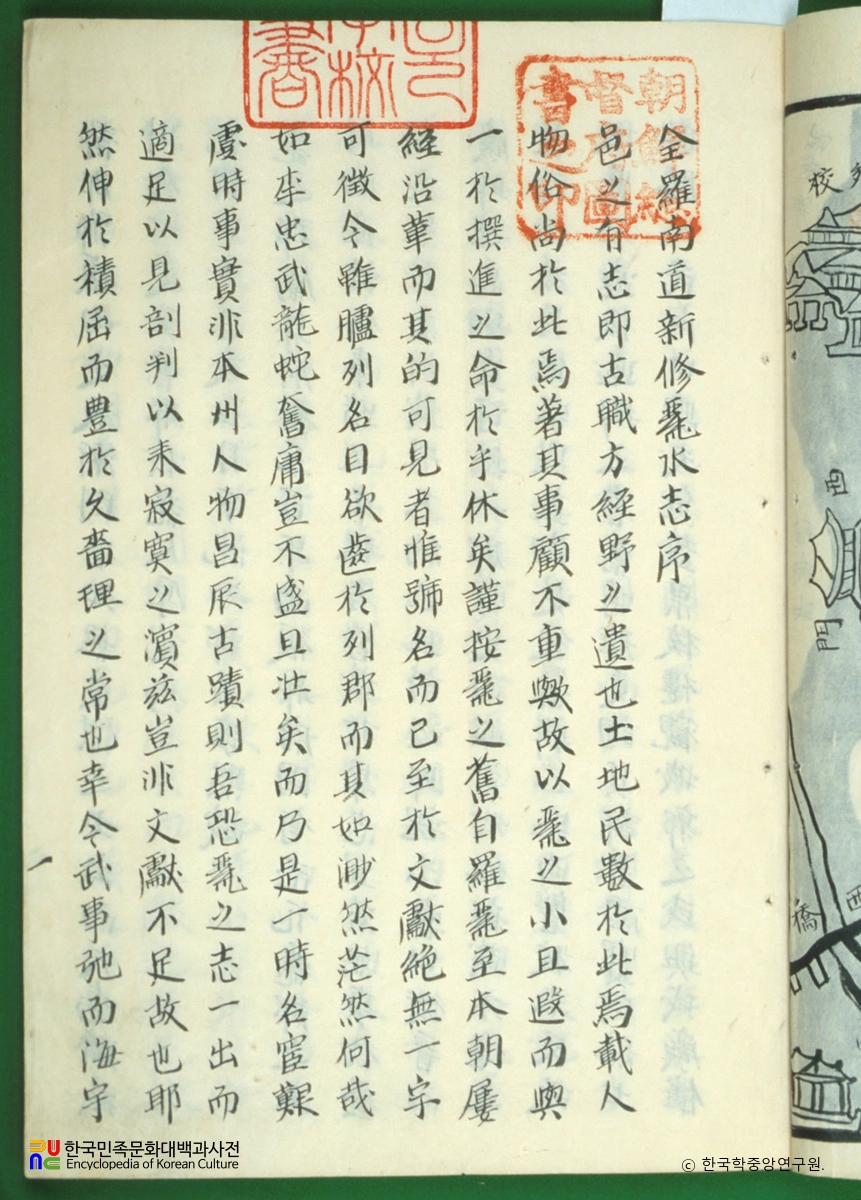 全羅南道新修麗水志序
邑之有志即古職方經野之遺也土地民數於此焉載人
物俗尚於此焉著其事顧不重歟故以麗之小且遐而與
一於撰進之命於乎休矣謹按麗之舊自羅麗至本朝屢
經沿革而其的可見者惟號名而已至於文獻絶無一字
可徵今雖臚列名目欲齒於列郡而其如渺然茫然何哉
如李忠武龍蛇奮庸豈不盛且壯矣而乃是一時名宦艱
虞時事實非本州人物昌辰古蹟則吾恐麗之志一出而
適足以見剖判以来寂寞之濱玆豈非文獻不足故也耶
然伸於積屈而豊於久嗇理之常也幸今武事弛而海宇
朝鮮總
督府圖
書之印
校
門
橋
한국민족문화대백과사전
Encyclopedia of Korean Culture
ⓒ 한국학중앙연구원.